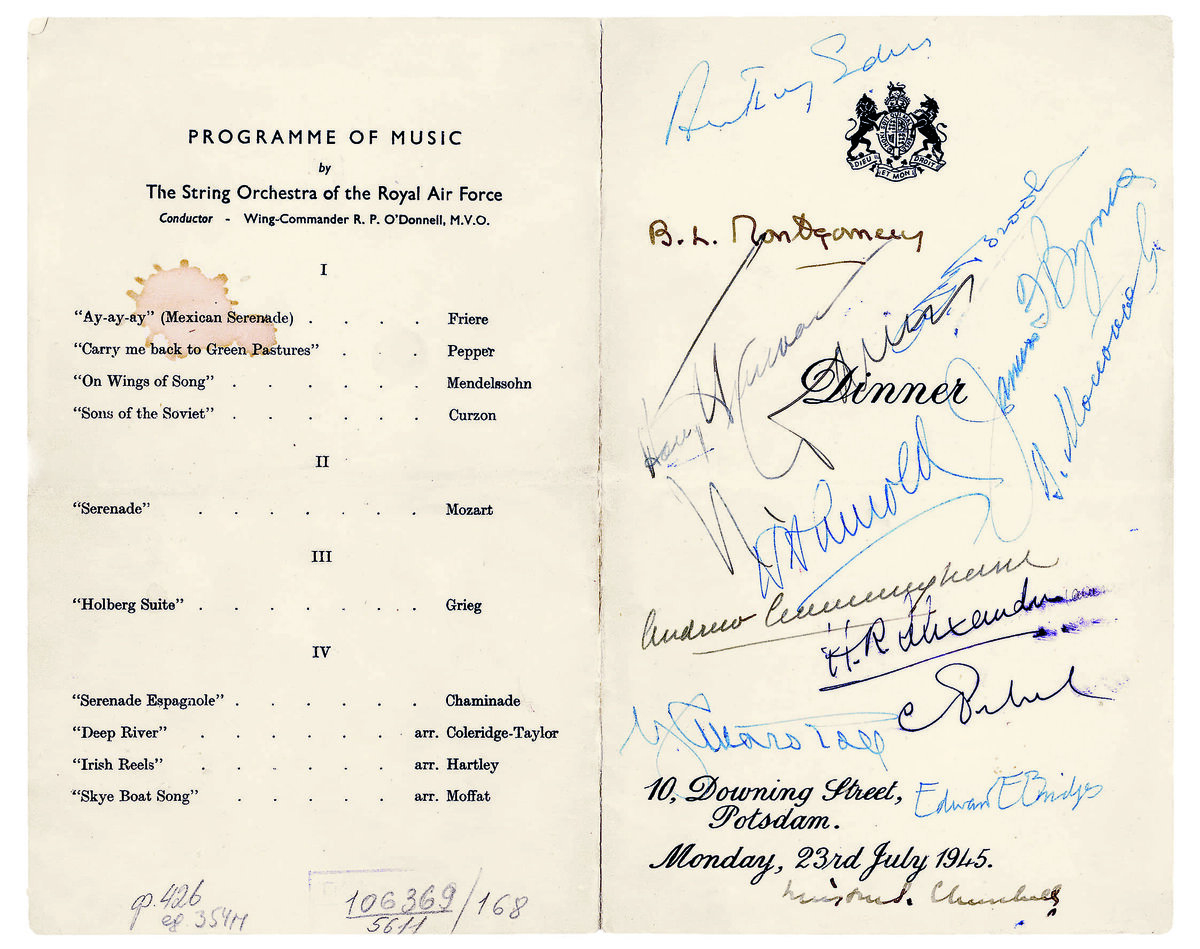 PROGRAMME OF MUSIC
by
The String Orchestra of the Royal Air Force
Conductor - Wing-Commander R. P. O'Donnell, M.V.O.
I
“Ay-ay-ay” (Mexican Serenade) . . . . Friere
“Carry me back to Green Pastures” . . . Pepper
“On Wings of Song” . . . . . . Mendelssohn
“Sons of the Soviet” . . . . . . Curzon
II
“Serenade” . . . . . . Mozart
III
“Holberg Suite” . . . . . . . Grieg
IV
“Serenade Espagnole” . . . . . Chaminade
“Deep River” . . . . . . arr. Coleridge-Taylor
“Irish Reels” . . . . . . arr. Hartley
“Skye Boat Song” . . . . . arr. Moffat
106369/168
5611
Anthony Eden
DIEU ET MON DROIT
B. L. Montgomery
James F Byrnes
Dinner
H Arnold
Andrew Cunningham
H. R. Alexander
10, Downing Street,
Edward E Bridges
Potsdam.
Monday, 23rd July 1945.
Winston S. Churchill